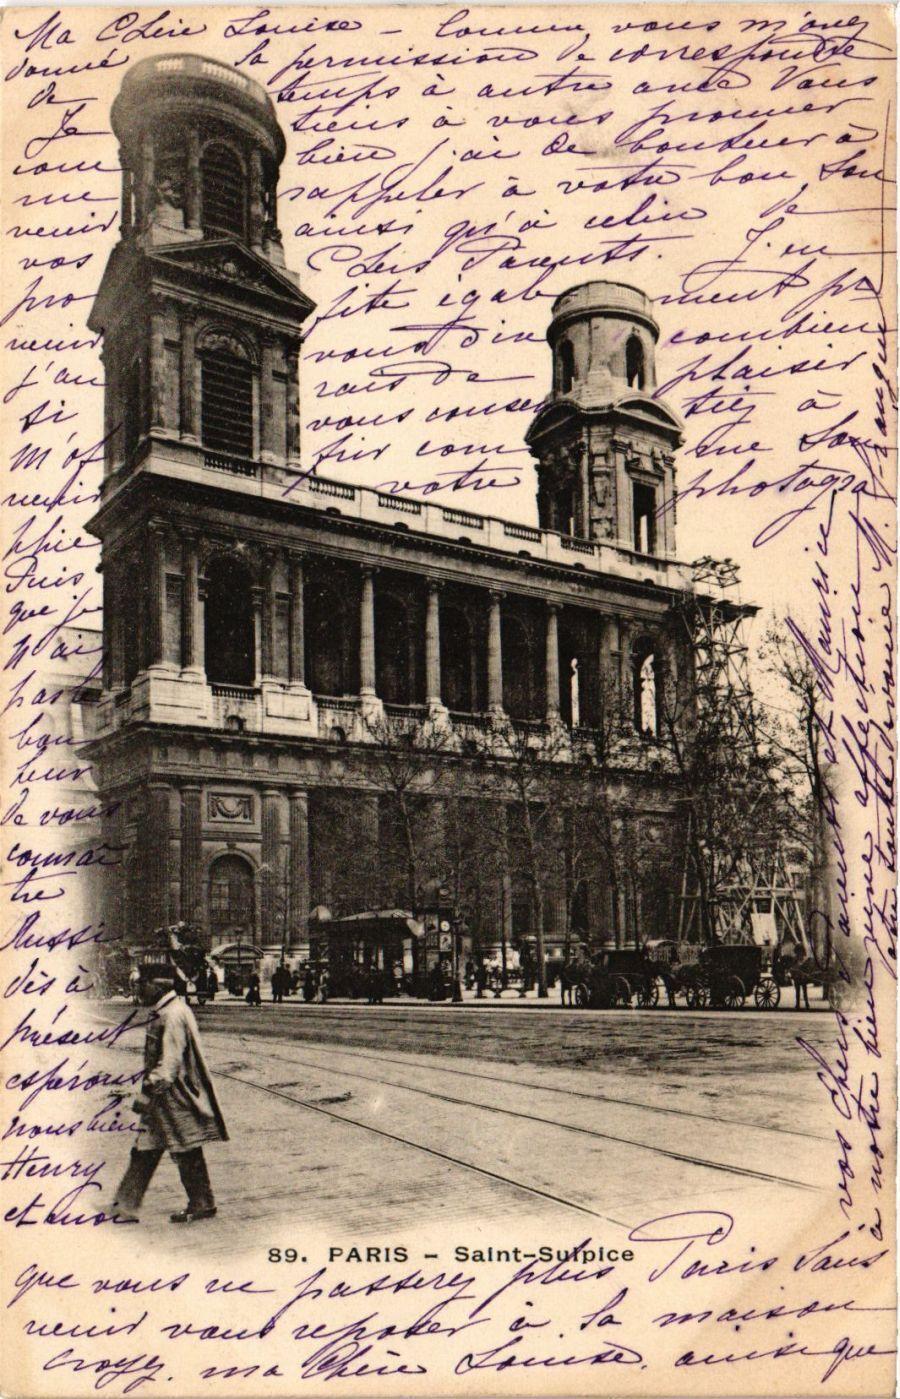 Ma Chère Louise – Comme vous m'avez
donné la permission de correspondre
de temps à autre avec Vous
Je tiens à vous prouver
com bien j'ai de bonheur à
me rappeler à votre bon Sou
venir ainsi qu'à celui de
vos Chers Parents. J'en
pro fite également pr
venir vous dire combien
j'au rais de plaisir
si vous consentiez à
m'of frir comme Sou
venir votre photogra
phie
Puis
que je
n'ai
pas le
bon
heur
de vous
connaî
tre
Aussi
dès à
présent
espérons
nous bien
Henry
et moi
89. PARIS – Saint-Sulpice
que vous ne passerez plus Paris Sans
venir vous reposer à la maison
croyez, ma Chère Louise, ainsi que
vos Chers Parents et Maurice
à notre bien vive affection M.